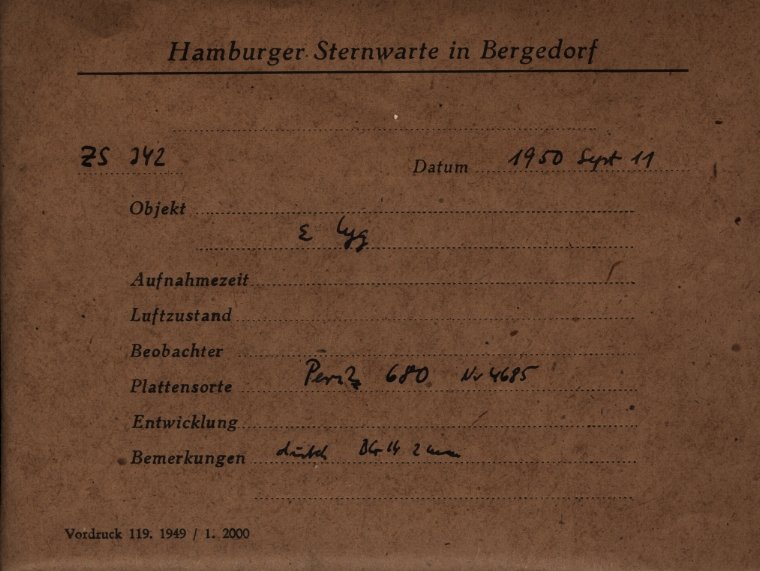 Hamburger Sternwarte in Bergedorf
ZS 342 Datum 1950 Sept 11
Objekt
ε Cyg
Aufnahmezeit
Luftzustand
Beobachter
Plattensorte Perutz 680 Nr 4685
Entwicklung
Bemerkungen durch 2 mm
Vordruck 119. 1949 / 1. 2000